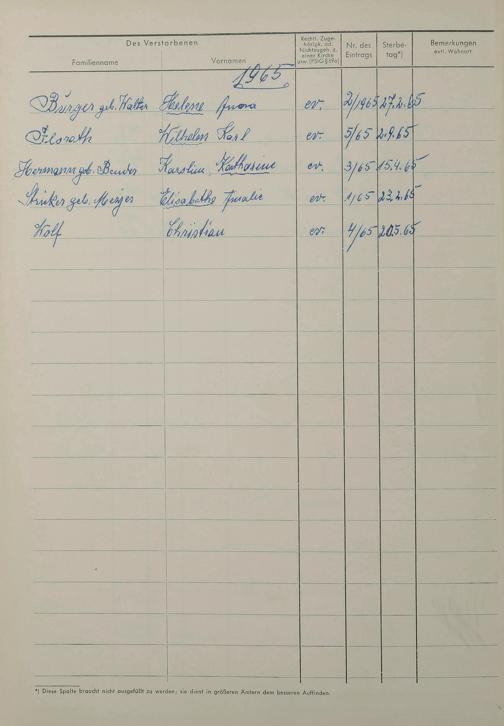 Des Verstorbenen
Rechtl. Zuge-
hörigk. od.
Nichtzugeh. z.
einer Kirche
usw. (PStG § 69a)
Nr. des
Eintrags
Sterbe-
tag*)
Bemerkungen
evtl. Wohnort
Familienname
Vornamen
1965
Bürger geb. Walter Helene Anna ev. 2/1965 27.2.65
Floroth Wilhelm Karl ev. 5/65 2.9.65
Hermann geb. Bender Karolina Katharine ev. 3/65 15.4.65
geb. Metzger Elisabethe Amalie ev. 1/65 23.2.65
Wolf Christian ev. 4/65 20.5.65
*) Diese Spalte braucht nicht ausgefüllt zu werden; sie dient in größeren Ämtern dem besseren Auffinden.